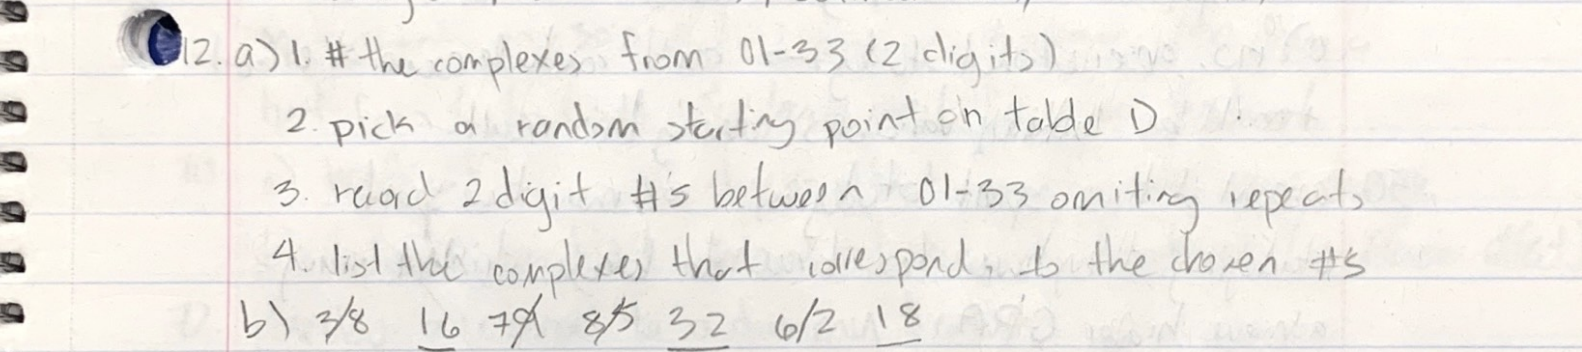 12. a) 1. # the complexes from 01-33 (2 digits)
2. pick a random starting point on table D
3. read 2 digit #'s between 01-33 omiting repeats
4. list the complexes that corresponds to the chosen #s
b) 38 16 79 85 32 62 18